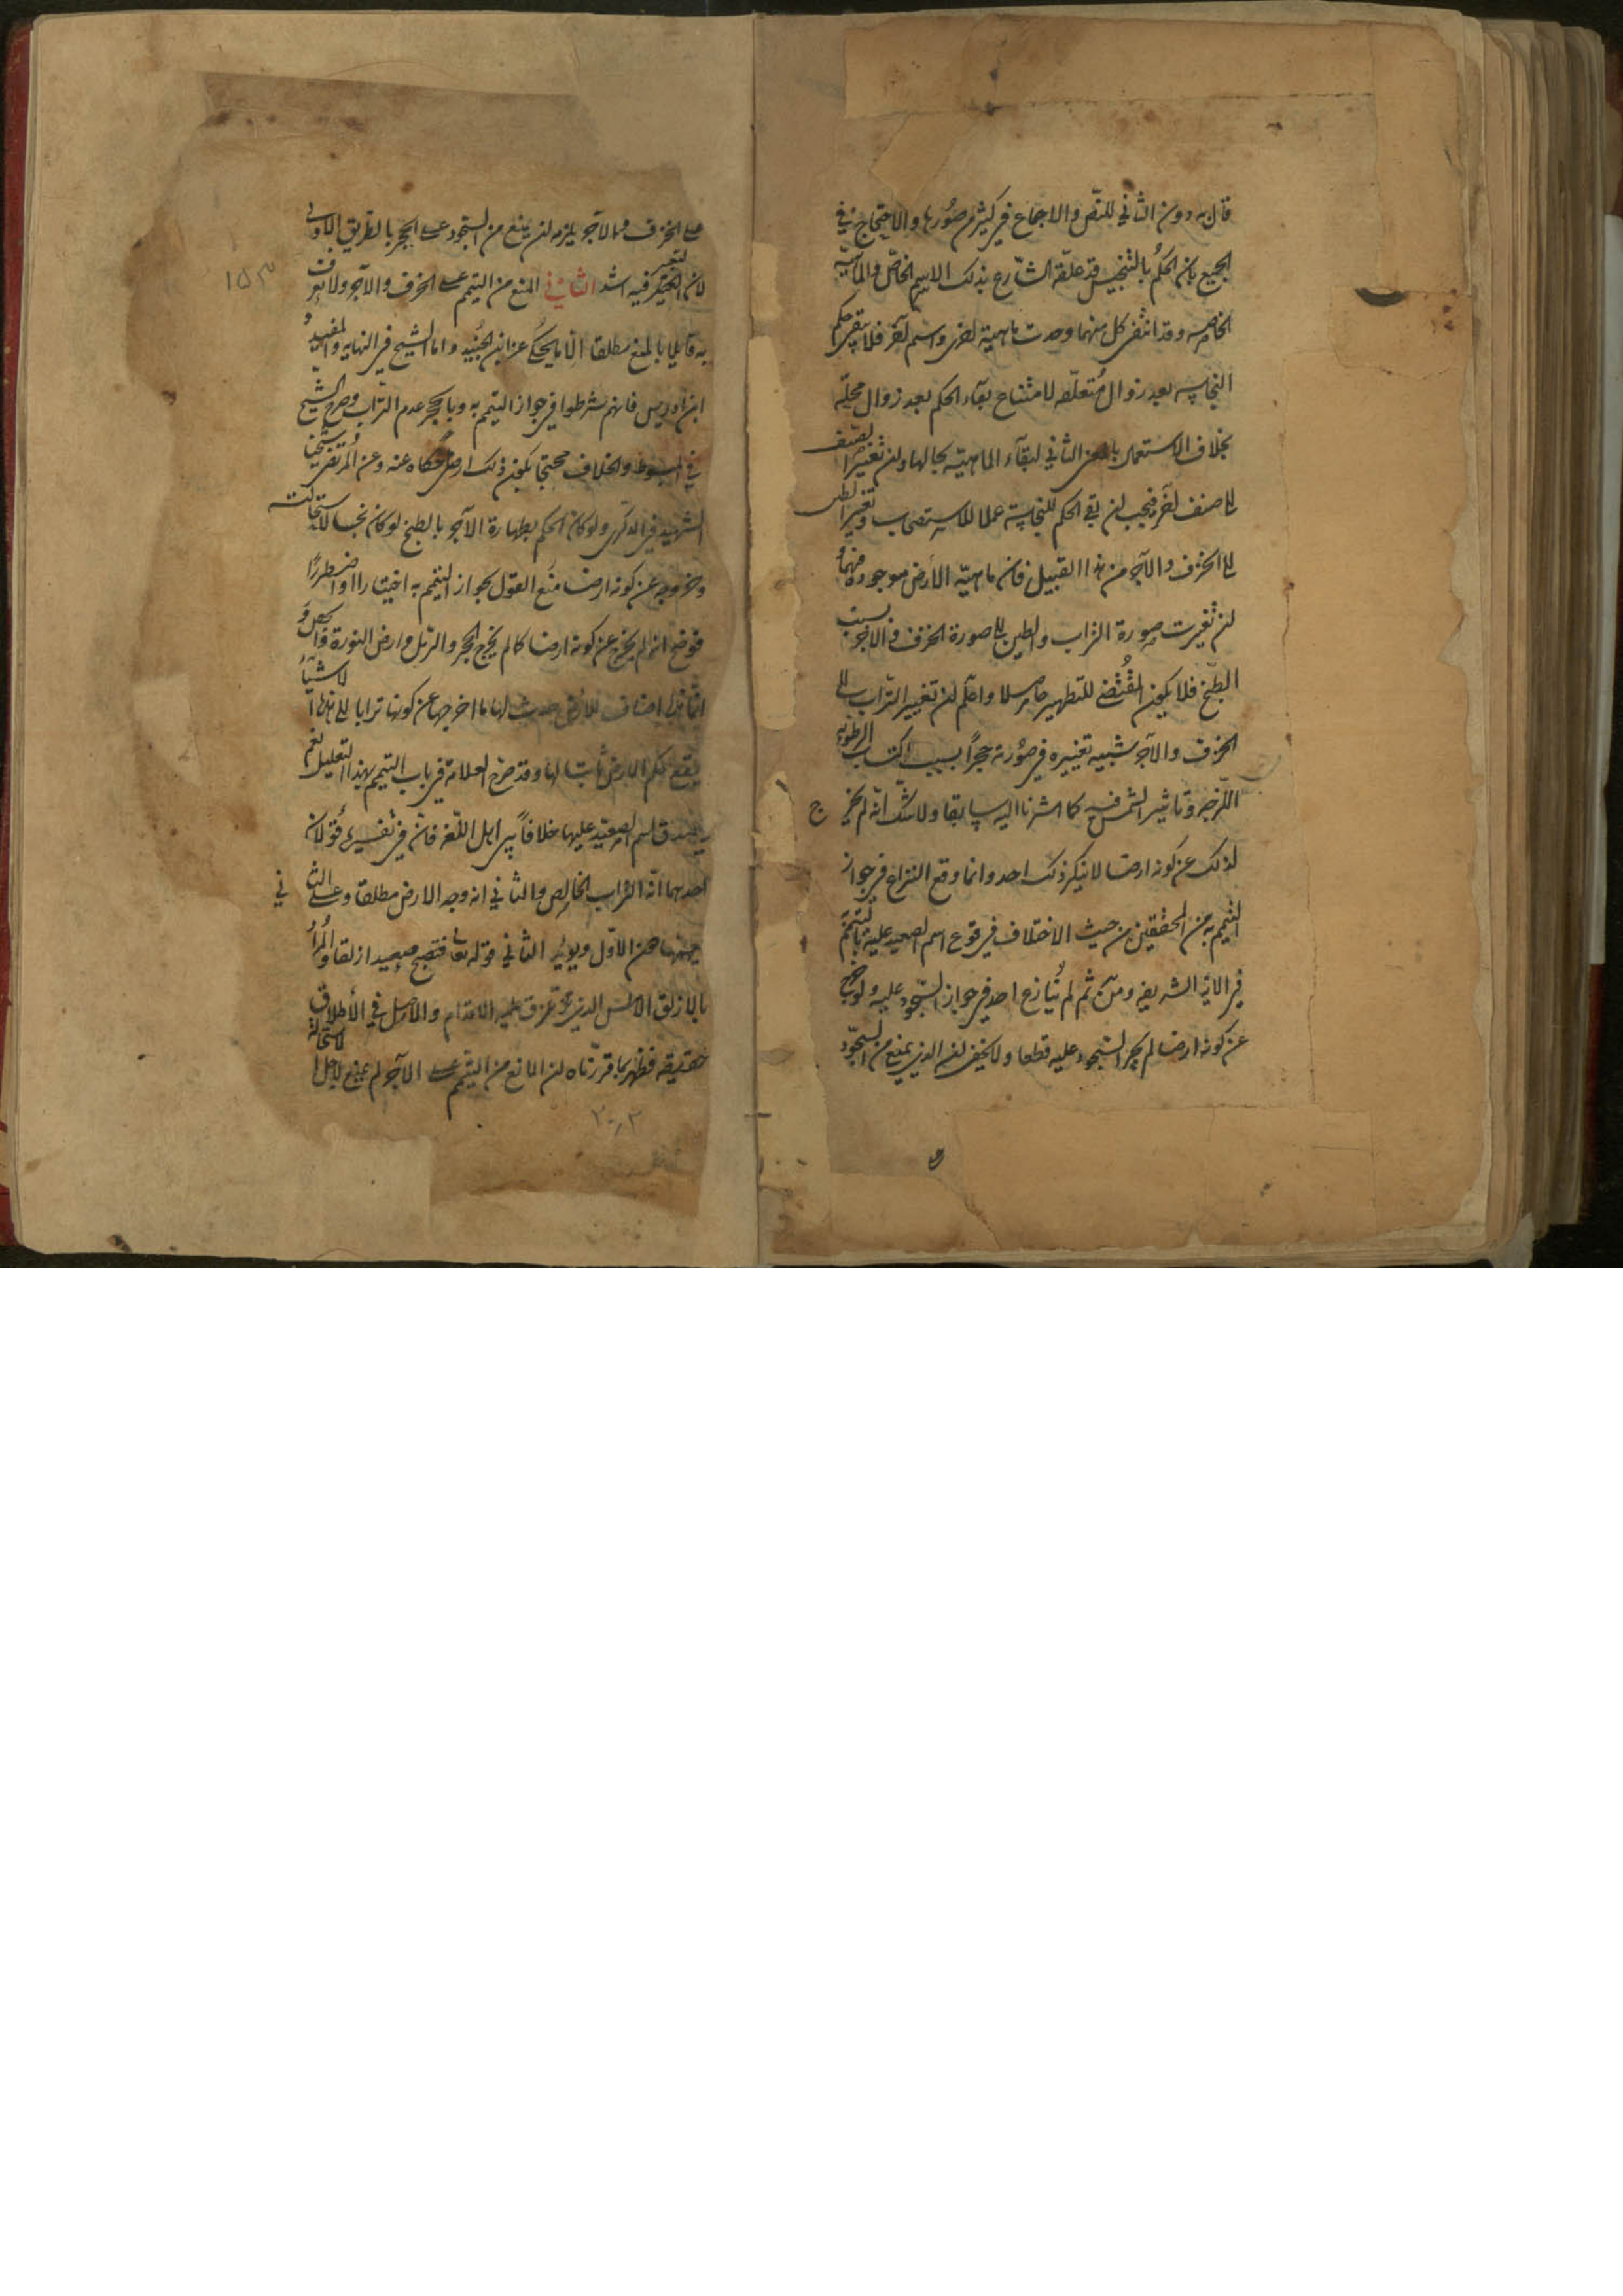 قال به دون الثاني للنص والاجماع في كثير من صورها والاحتجاج في
الجميع بان الحكم بالتنجيس قد علقه الشارع بذلك الاسم الخاص والماهية
الخاصه وقد انتفى كل منهما وحدث ماهية اخرى واسم آخر فلا يبقى حكم
النجاسه بعد زوال متعلقه لامتناع بقاء الحكم بعد زوال محله
بخلاف الاستعمال بالمعنى الثاني لبقاء الماهية بحالها وان تغير الصنف
الى صنف آخر فيجب ان يبقى الحكم للنجاسة عملا للاستصحاب وتغير الطين
الى الخزف والآجر من هذا القبيل فان ماهية الارض موجودة فيهما
ان تغيرت صورة التراب والطين الى صورة الخزف والآجر بسبب
الطبخ فلا يكون المقتضي للتطهير حاصلا واعلم ان تغيير التراب الى
الخزف والآجر شبيه تغييره في صورته حجرا بسبب اكتساب الرطوبه
اللزجه وتاثير الشمس فيه كما اشرنا اليه سابقا ولا شك انه لم يخرج
لذلك عن كونه ارضا لا ينكر ذلك احد وانما وقع النزاع في جواز
التيمم به من المحققين من حيث الاختلاف في وقوع اسم الصعيد عليه
في الاية الشريفه ومن ثم لم ينازع احد في جواز السجود عليه ولو خرج
عن كونه ارضا لم يجز السجود عليه قطعا ولا يخفى ان الذي يمنع من السجود
على الخزف والآجر يلزمه ان يمنع من السجود على الحجر بالطريق الاولى
لان التغير فيه اشد الثاني المنع من التيمم على الخزف والآجر ولا نعرف
به قايلا بالمنع مطلقا الا ما يحكى عن ابن الجنيد واما الشيخ في النهايه والمفيد و
ابن ادريس فانهم شرطوا في جواز التيمم به وبالحجر عدم التراب وصرح الشيخ
في المبسوط والخلاف محتجا بكون ذلك ارض حكاه عنه وعن المرتضى شيخنا
الشهيد في الذكرى ولو كان الحكم بطهارة الآجر بالطبخ لو كان نجسا لاستحالته
وخروجه عن كونه ارضا منع القول بجواز التيمم به اختيارا او اضطرارا
فوضح انه لم يخرج عن كونه ارضا كما لم يخرج الحجر والرمل وارض النورة والجص و
انما هذه اصناف للارض حدث لها ما اخرجها عن كونها ترابا الى هذه الاشياء
يقع حكم الارض ثابت لها وقد صرح العلامة في باب التيمم بهذا التعليل نعم
يصدق اسم الصعيد عليها خلافا بين اهل اللغه فان في تفسيره قولان
احدهما انه التراب الخالص والثاني انه وجه الارض مطلقا وعلى الثاني
الاول ويؤيد الثاني قوله تعالى فتصبح صعيدا زلقا والمراد
بالازلق الاملس الذي تزلق عليه الاقدام والاصل في الاطلاق
حقيقه فظهر بما قررناه ان المانع من التيمم على الآجر لم يمنع لاجل الاستحالة
١٥٣